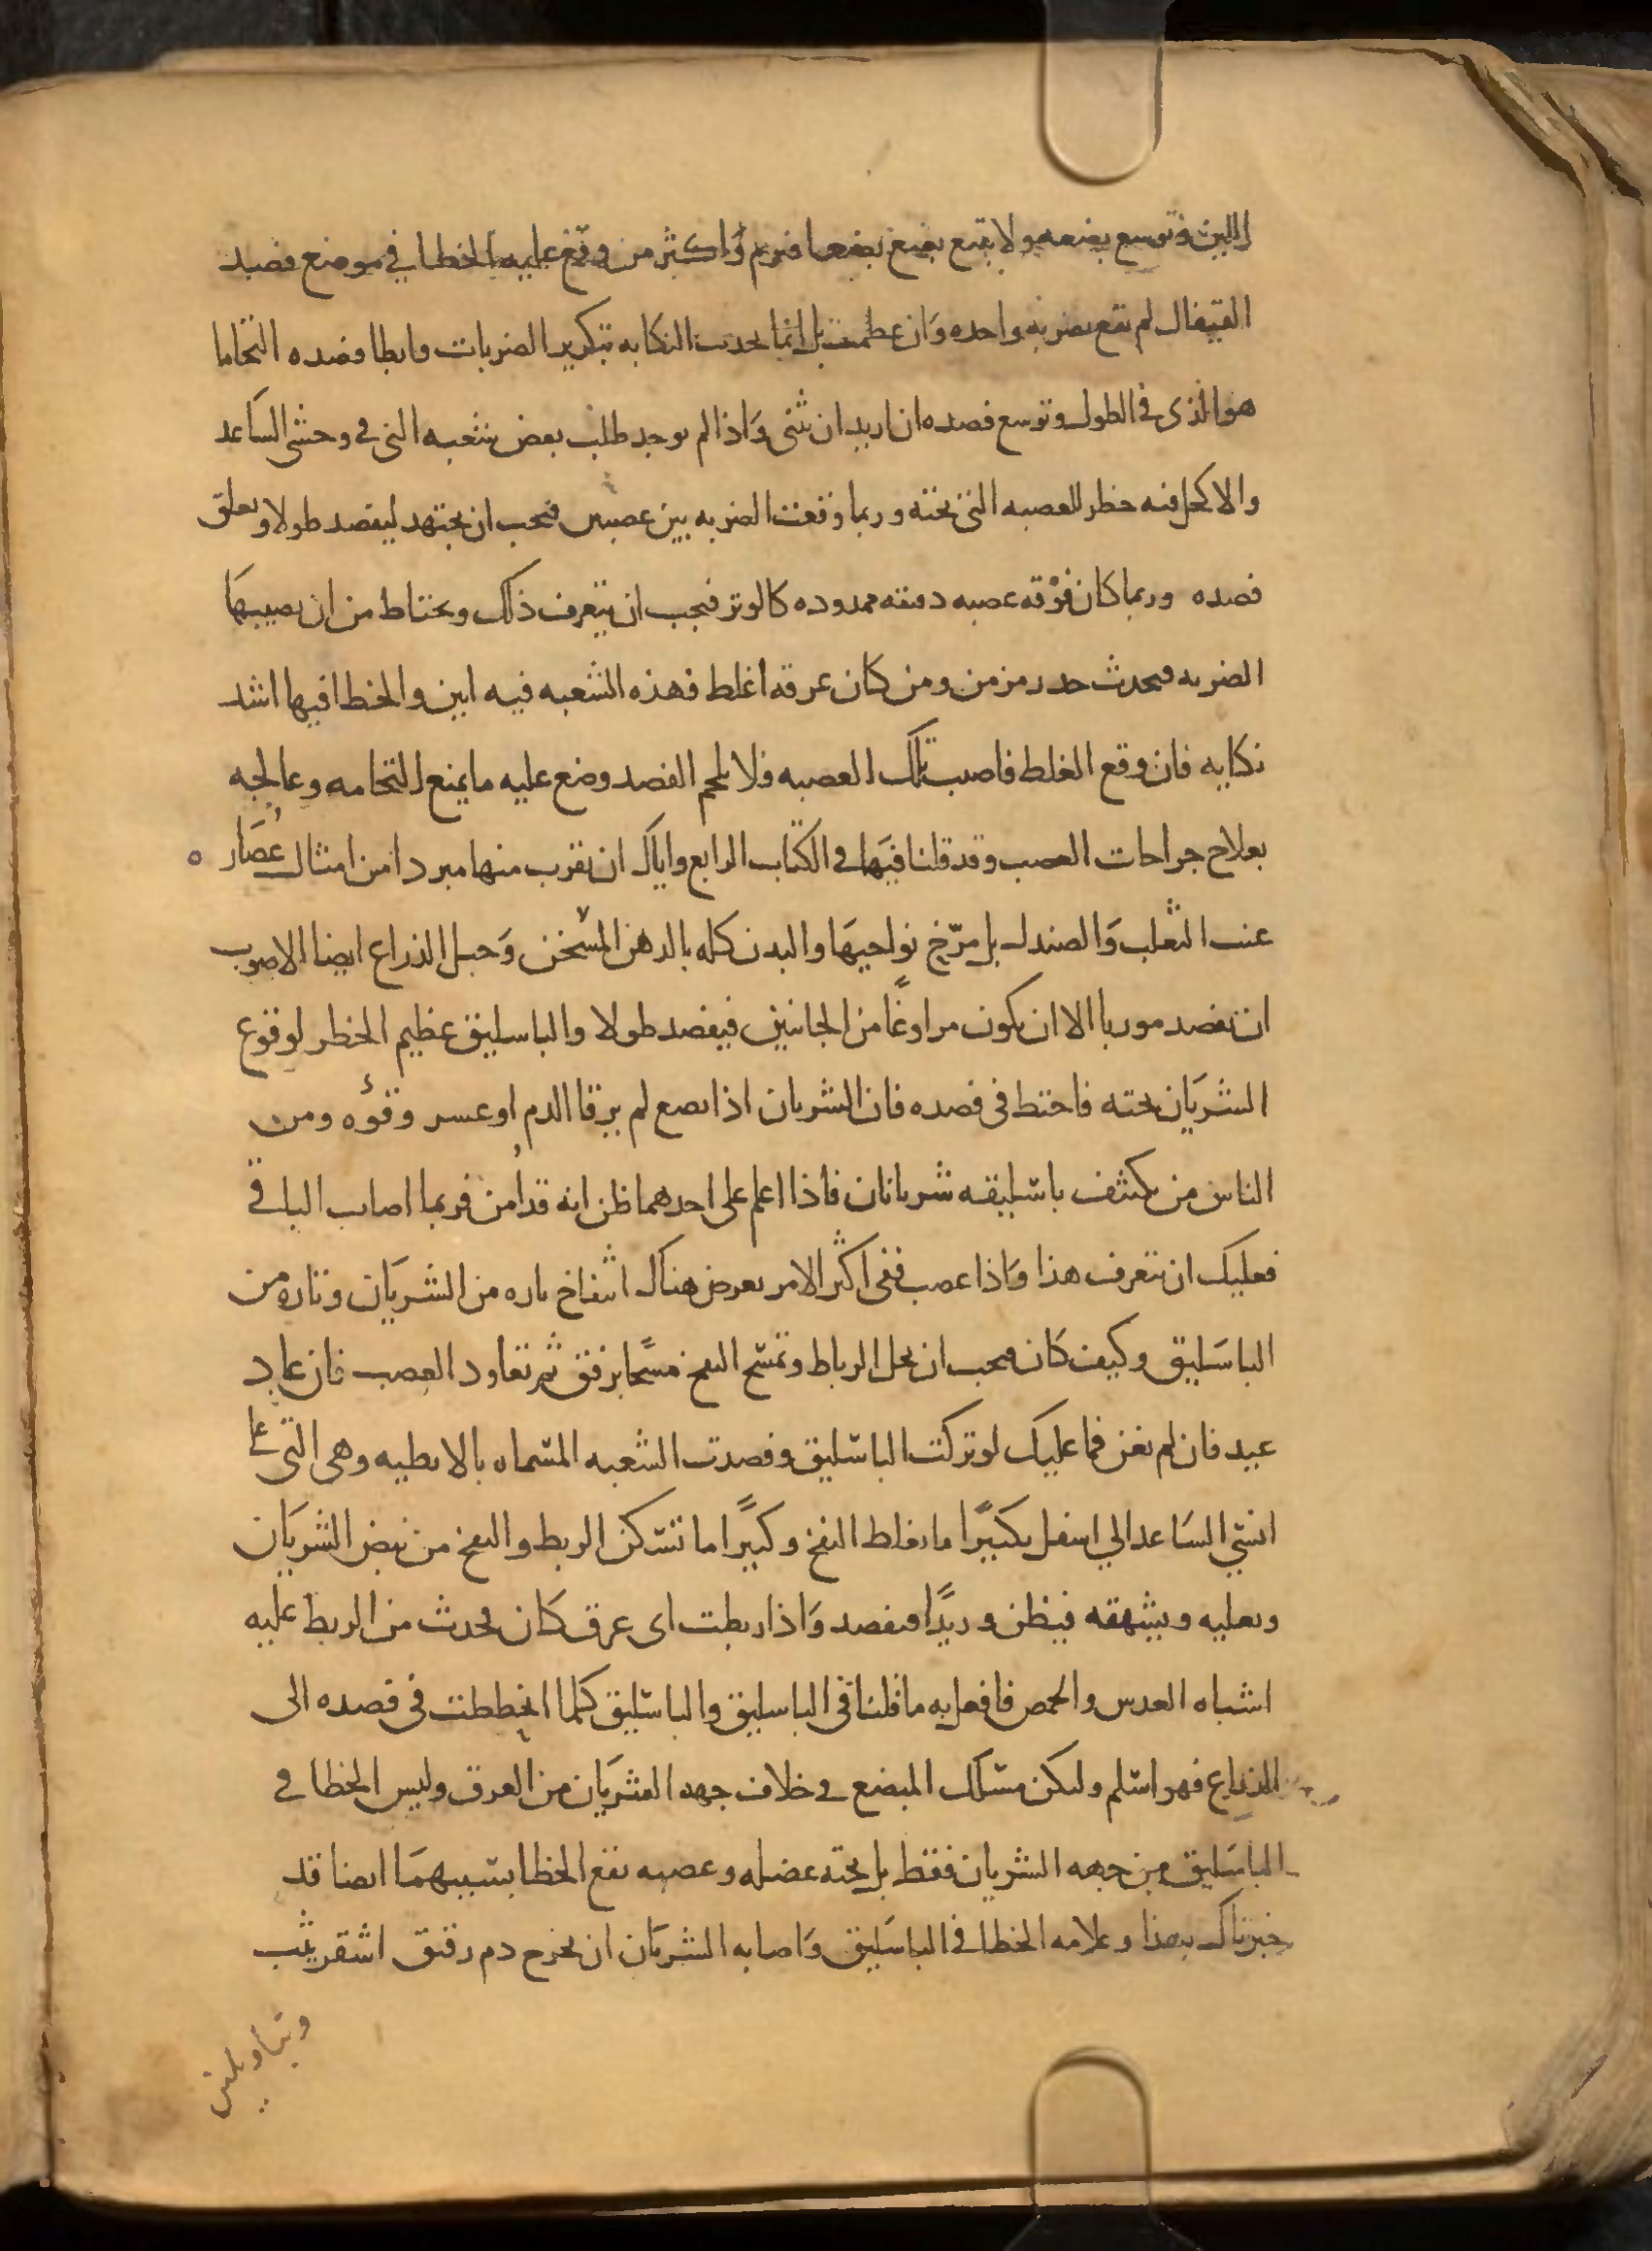 اللين وتوسع بضعه ولا يتبع بضع بضعا فيرم واكثر من وقع عليه الخطا في موضع فصد
القيفال لم يقع بضربه واحده وان عظمت بل انما يحدث النكايه بتكرير الضربات وابطا فصده التحاما
هو الذى فى الطول وتوسع فصده ان اريد ان يثنى واذا لم يوجد طلب بعض شعبه التى فى وحشى الساعد
والاكحل فيه خطر للعصبه التى تحته وربما وقعت الضربه بين عصبتين فيجب ان يجتهد ليفصد طولا ويعلق
فصده وربما كان فوقه عصبه دقيقه ممدوده كالوتر فيجب ان يتعرف ذلك ويحتاط من ان يصيبها
الضربه فيحدث خدر مزمن ومن كان عرقه اغلظ فهذه الشعبه فيه ابين والخطا فيها اشد
نكايه فان وقع الغلط فاصيب تلك العصبه فلا تلحم الفصد وضع عليه ما يمنع التحامه وعالجه
بعلاج جراحات العصب وقد قلنا فيها فى الكتاب الرابع واياك ان تقرب منها مبردا من امثال عُصَار
عنب الثعلب والصندل بل مرّخ نواحيها والبدن كله بالدهن المسخن وحبل الذراع ايضا الاصوب
ان يفصد موربا الا ان يكون مراوغًا من الجانبين فيفصد طولا والباسليق عظيم الخطر لوقوع
الشريان تحته فاحتط فى فصده فان الشريان اذا بضع لم يرقا الدم او عسر رقوُه ومن
الناس من يكتنف باسليقه شريانان فاذا اعلم على احدهما ظن انه قد أمن فربما اصاب الباقى
فعليك ان تتعرف هذا واذا عصب ففى اكثر الامر يعرض هناك انتفاخ تاره من الشريان وتاره من
الباسليق وكيف كان فيجب ان يحل الرباط وتمسح النفخ مسحًا برفق ثم تعاود العصب فان عاد
عيد فان لم يغن فما عليك لو تركت الباسليق وفصدت الشعبه المسماه بالابطيه وهى التى على
انسي الساعد الي اسفل بكثيرًا ما يغلط النفخ وكثيرًا ما تسكن الربط والنفخ من نبض الشريان
ويعليه ويشهقه فيظن وريدًا فيفصد واذا ربطت اى عرق كان فحدث من الربط عليه
اشباه العدس والحمص فافعل به ما قلنا فى الباسليق والباسليق كلما انحططت فى فصده الى
الذراع فهو اسلم وليكن مسلك المبضع فى خلاف جهه الشريان من العرق وليس الخطا فى
الباسليق من جهه الشريان فقط بل تحته عضله وعصبه يقع الخطا بسببهما ايضا قد
خبرناك بهذا وعلامه الخطا فى الباسليق واصابه الشريان ان يخرج دم رقيق اشقر يثب